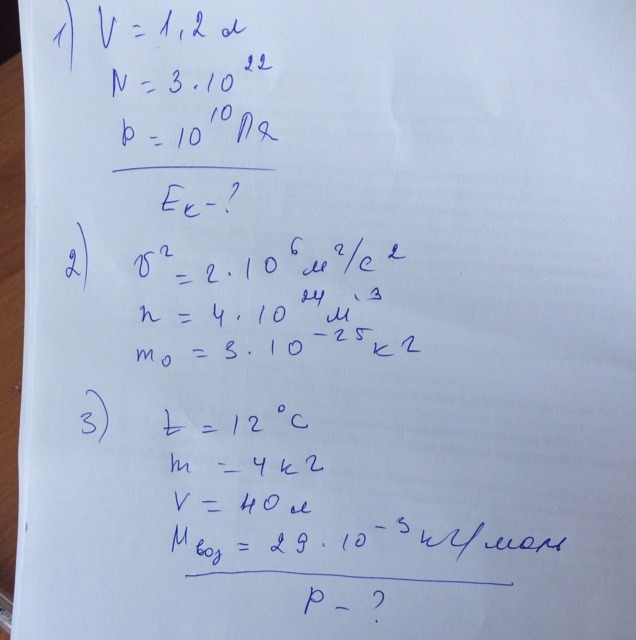 1) V = 1,2 л
N = 3·10²²
p = 10¹⁰ Па
Eк - ?
2) v² = 2·10⁶ м²/с²
n = 4·10²⁴ м⁻³
m₀ = 3·10⁻²⁵ кг
3) t = 12°C
m = 4 кг
V = 40 л
Mвоз = 29·10⁻³ кг/моль
P - ?